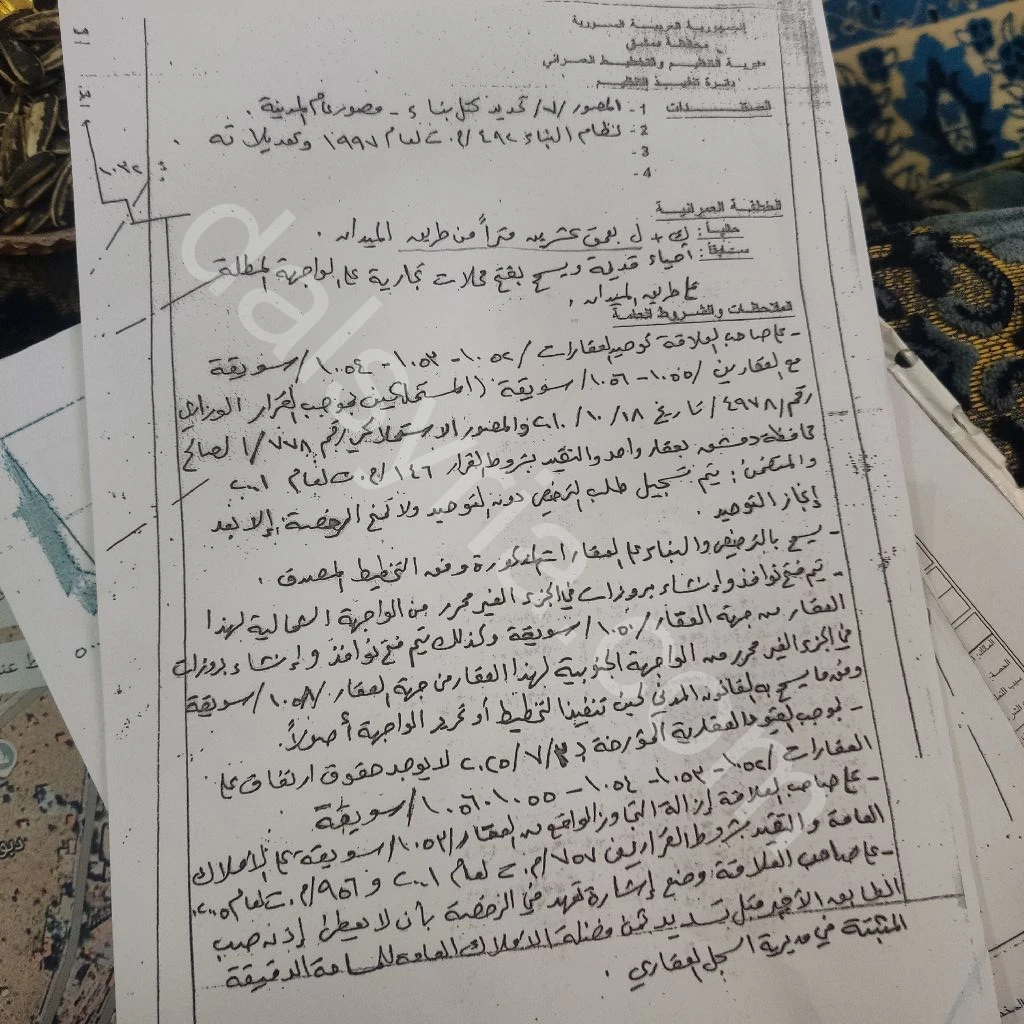 الجمهورية العربية السورية
محافظة دمشق
مديرية التنظيم والتخطيط العمراني
دائرة تنفيذ التنظيم
المستندات
1 - المصور /٧/ تحديد كتل بناء - مصور عام المدينة .
2 - نظام البناء ٤٩٢/م.ت لعام ١٩٩٧ وتعديلاته
3 -
4 -
١٠٣٢
الصفة العمرانية
حالياً : ك + ل بعمق عشرين متراً من طريق الميدان .
سابقاً : أحياء قديمة ويسمح بفتح محلات تجارية على الواجهة المطلة
على طريق الميدان .
الملاحظات والشروط العامة
- على صاحب العلاقة توحيد العقارات /١٠٥٢ - ١٠٥٣ - ١٠٥٤/ سويقة
مع العقارين /١٠٥٥ - ١٠٥٦/ سويقة (المستملكين بموجب القرار الوزاري
رقم /٤٩٧٨/ تاريخ ١٨/١٠/ والمصور الاستملاكي رقم ٧٧٨/١ لصالح
محافظة دمشق بعقار واحد والتقيد بشروط القرار ١٤٦/م.ت لعام ٢٠٠١
والمتضمن : يتم تسجيل طلب الترخيص دون التوحيد ولا تمنح الرخصة إلا بعد
إنجاز التوحيد .
- يسمح بالترخيص والبناء على العقارات المذكورة وفق التخطيط المصدق .
- يتم فتح نوافذ وإنشاء بروزات في الجزء الغير محرر من الواجهة الشمالية لهذا
العقار من جهة العقار /١٠٥٠/ سويقة وكذلك يتم فتح نوافذ وإنشاء بروزات
في الجزء الغير محرر من الواجهة الجنوبية لهذا العقار من جهة العقار سويقة
وفق ما يسمح به القانون المدني لحين تنفيذ التخطيط أو تحرير الواجهة أصولاً .
- بموجب القيود العقارية المؤرخة /٧/٢٠٢٥ لا يوجد حقوق ارتفاق على
العقارات /١٠٥٢ - ١٠٥٣ - ١٠٥٤ - ١٠٥٥ - ١٠٥٦/ سويقة
- على صاحب العلاقة إزالة التجاوز الواقع من العقار /١٠٥٣/ سويقة على الأملاك
العامة والتقيد بشروط القرارين ٧٥٧/م.ت لعام ٢٠٠١ و ٩٥٦/م.ت لعام ٢٠٠٥
- على صاحب العلاقة وضع إشارة تعهد في الرخصة بأن لا يعطى إذن صب
الطابق الأخير قبل تسديد ثمن فضلة الأملاك العامة للمساحة الدقيقة
المثبتة في مديرية السجل العقاري .
dalsyria.com